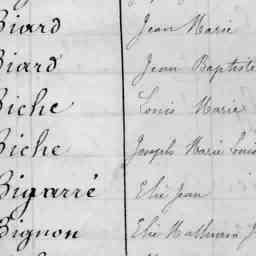 Biard Jean Marie
Biard Jean Baptiste
Biche Louis Marie
Biche Joseph Marie Louis
Bigarré Elie Jean
Bignon Elie Mathurin J